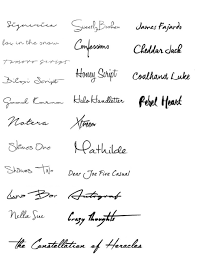 Signerica
Sincerely Broken
James Fajardo
fox in the snow
Confessions
Cheddar Jack
Honey Script
Coalhand Luke
Biloxi Script
Halo Handletter
Rebel Heart
Good Karma
Notera
Xtreem
Shaws One
Mathilde
Shaws Two
Dear Joe Five Casual
Autograf
Nella Sue
Crazy Thoughts
the Constellation of Heracles